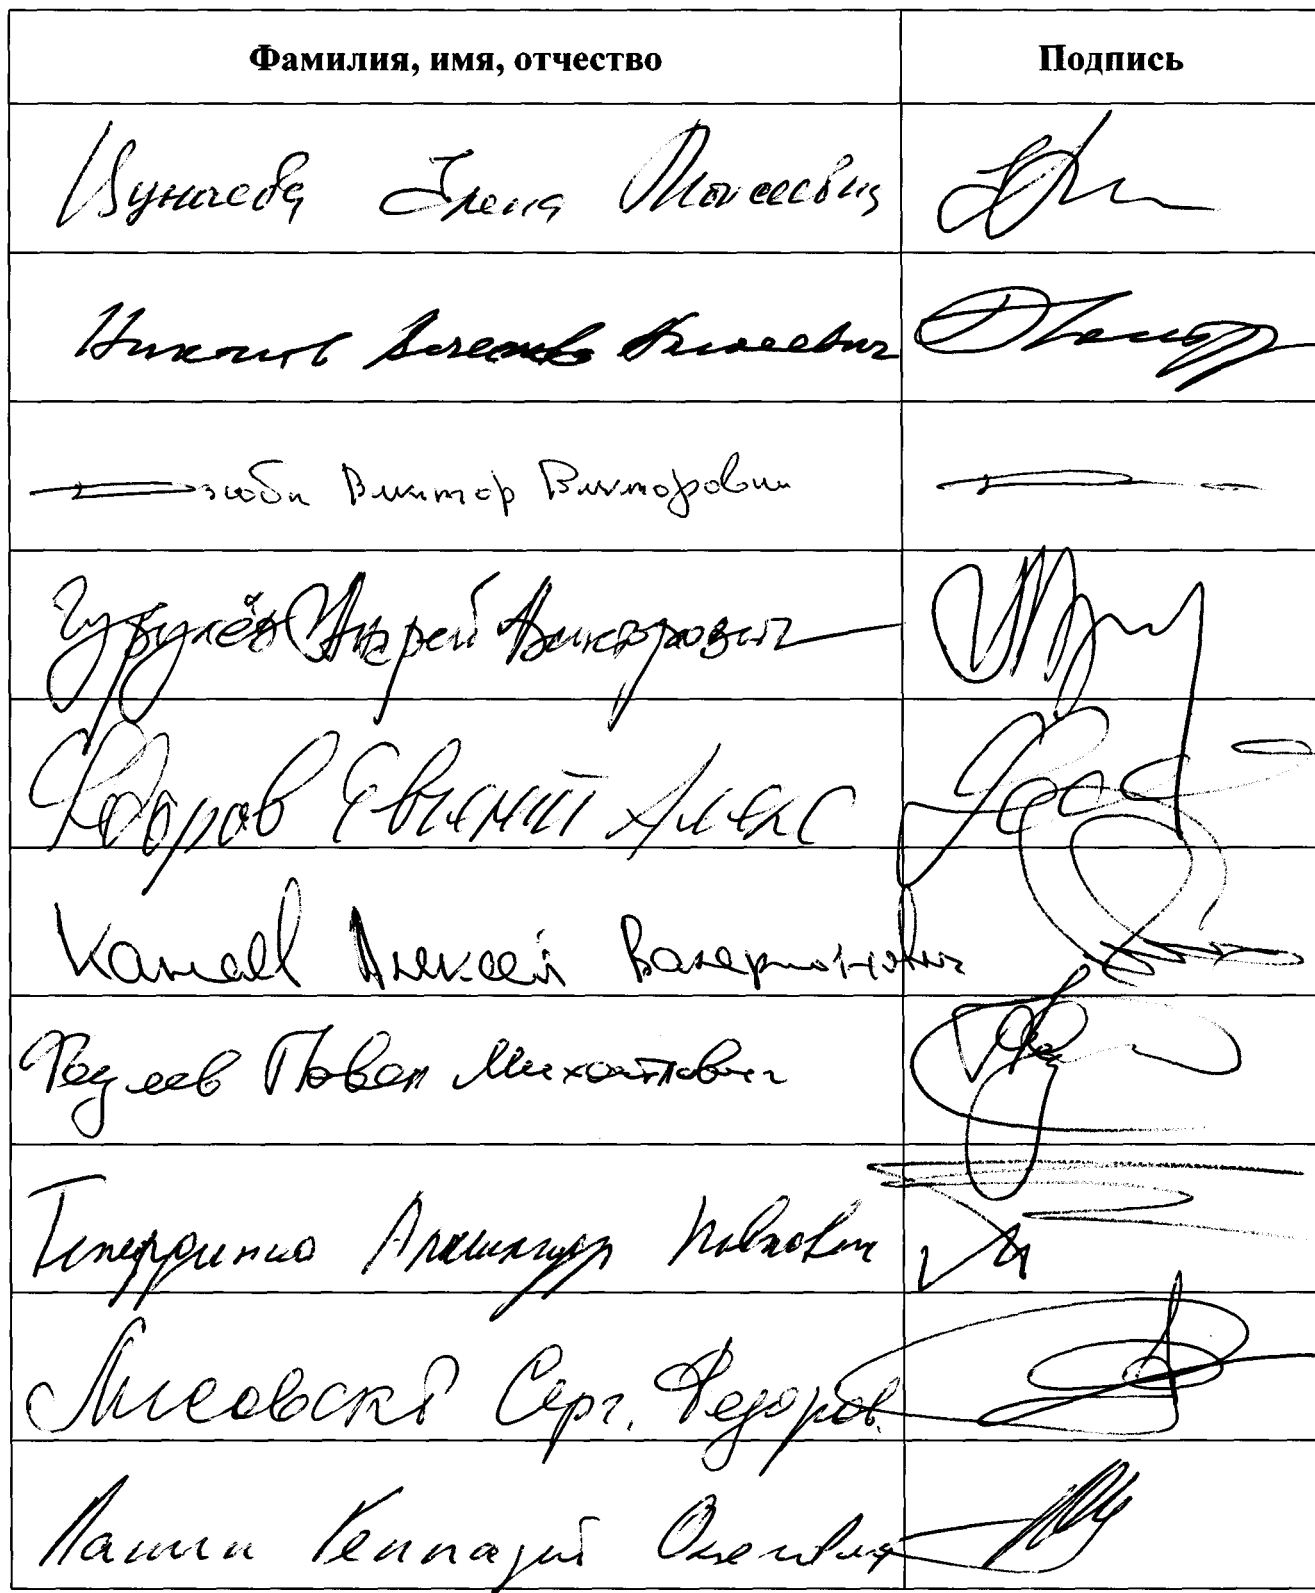 Фамилия, имя, отчество Подпись
Цунаева Елена Моисеевна
Никонов Вячеслав Алексеевич
Дзюба Виктор Викторович
Гурулёв Андрей Викторович
Фёдоров Евгений Алекс
Канаев Алексей Валерианович
Федяев Павел Михайлович
Александр Павлович
Лисовский Серг. Федоров.
Панин Геннадий Олегович